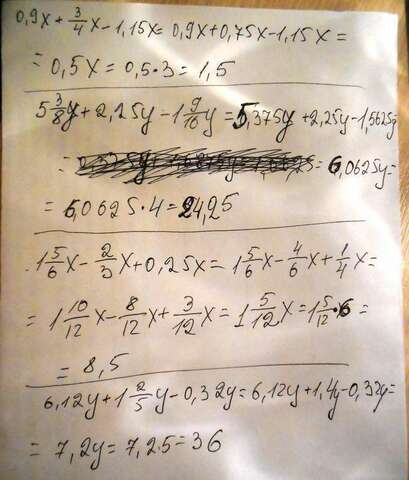 0,9x + 3/4 x - 1,15x = 0,9x + 0,75x - 1,15x =
= 0,5x = 0,5·3 = 1,5
5 3/8 y + 2,25y - 1 9/16 y = 5,375y + 2,25y - 1,5625y
= 6,0625y =
= 6,0625·4 = 24,25
1 5/6 x - 2/3 x + 0,25x = 1 5/6 x - 4/6 x + 1/4 x =
= 1 10/12 x - 8/12 x + 3/12 x = 1 5/12 x = 1 5/12 · 6 =
= 8,5
6,12y + 1 2/5 y - 0,32y = 6,12y + 1,4y - 0,32y =
= 7,2y = 7,2·5 = 36